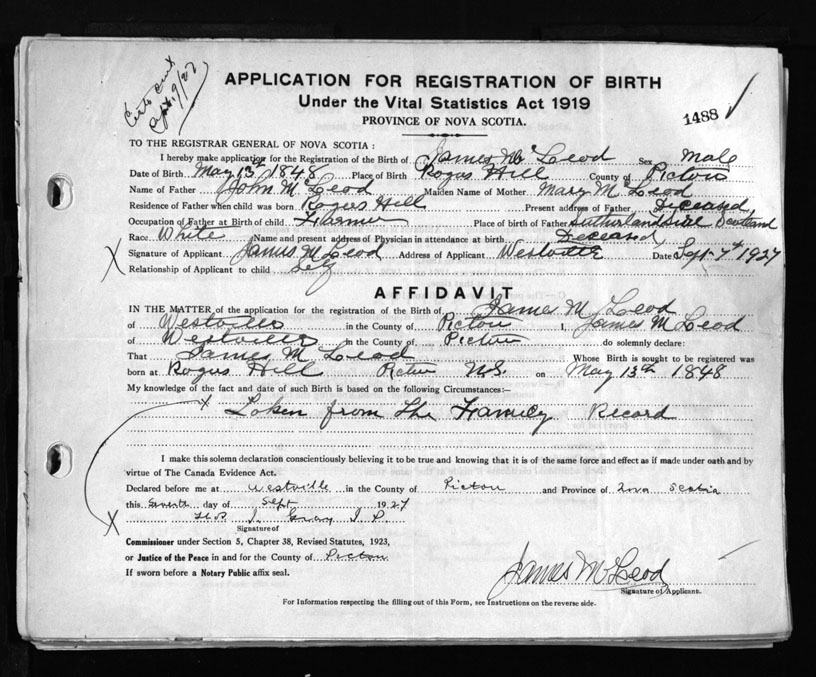 Sept. 9/27
APPLICATION FOR REGISTRATION OF BIRTH
Under the Vital Statistics Act 1919
PROVINCE OF NOVA SCOTIA.
1488
TO THE REGISTRAR GENERAL OF NOVA SCOTIA :
I hereby make application for the Registration of the Birth of James McLeod Sex Male
Date of Birth May 13th 1848 Place of Birth Rogus Hill County of Pictou
Name of Father John McLeod Maiden Name of Mother Mary McLeod
Residence of Father when child was born Rogus Hill Present address of Father Deceased
Occupation of Father at Birth of child Farmer Place of birth of Father Sutherlandshire Scotland
Race White Name and present address of Physician in attendance at birth Deceased
X Signature of Applicant James McLeod Address of Applicant Westville Date Sept 7th 1927
Relationship of Applicant to child Self
AFFIDAVIT
IN THE MATTER of the application for the registration of the Birth of, James McLeod
of Westville in the County of Pictou I, James McLeod
of Westville in the County of Pictou do solemnly declare:
That James McLeod Whose Birth is sought to be registered was
born at Rogus Hill Pictou N.S. on May 13th 1848
My knowledge of the fact and date of such Birth is based on the following Circumstances:—
x Taken from the Family Record
I make this solemn declaration conscientiously believing it to be true and knowing that it is of the same force and effect as if made under oath and by
virtue of The Canada Evidence Act.
Declared before me at Westville in the County of Pictou and Province of Nova Scotia
this Seventh day of Sept 1927
X Gray J. P.
Signature of
Commissioner under Section 5, Chapter 38, Revised Statutes, 1923,
or Justice of the Peace in and for the County of Pictou
If sworn before a Notary Public affix seal.
James McLeod
Signature of Applicant.
For Information respecting the filling out of this Form, see Instructions on the reverse side.